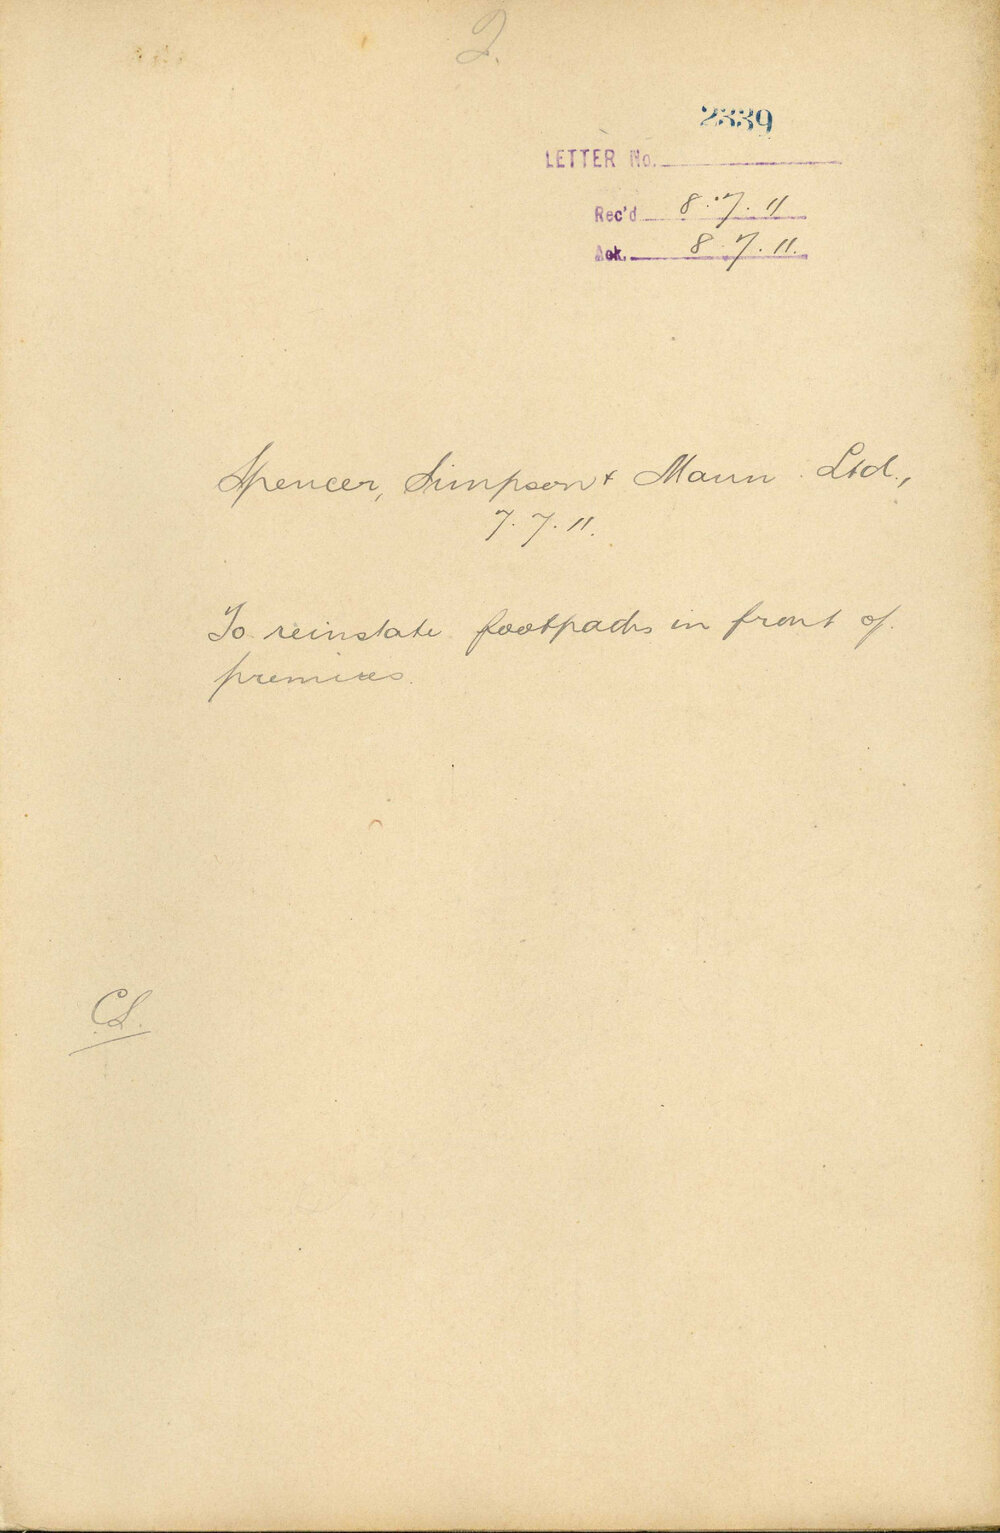 2.
2339
LETTER No.
Rec'd 8.7.11
Ack. 8.7.11.
Spencer, Simpson & Mann Ltd.,
7.7.11.
To reinstate footpaths in front of
premises.
CL.